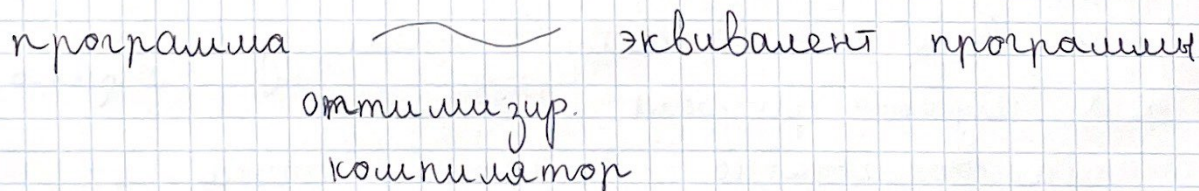 программа ~ эквивалент программы
оптимизир.
компилятор